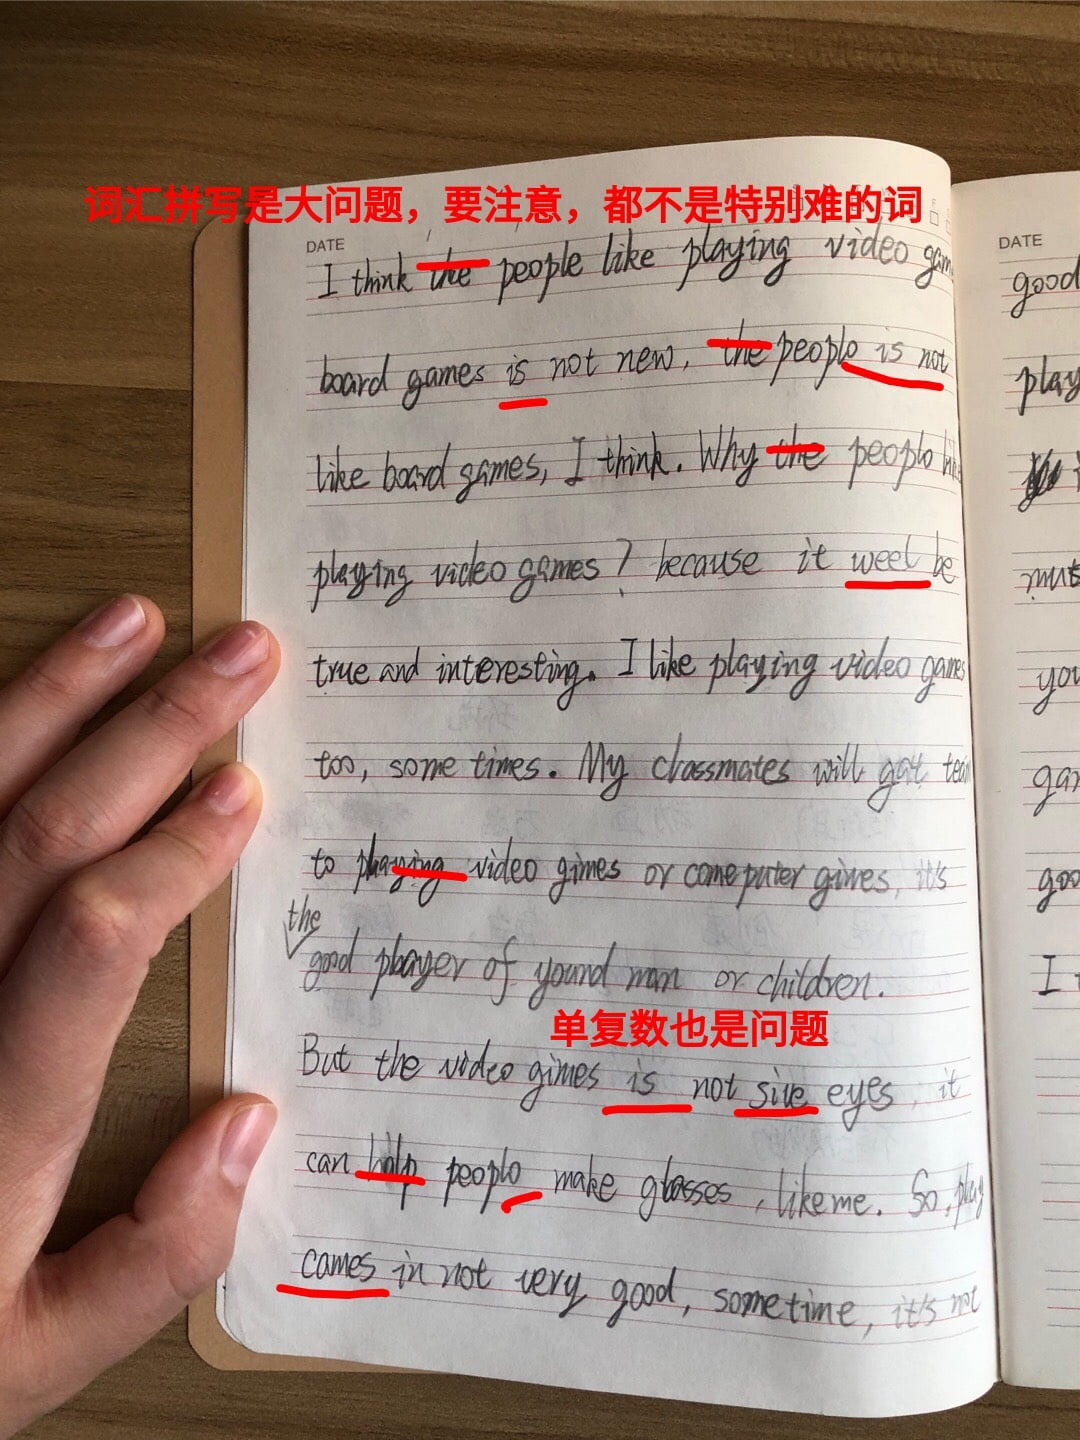 词汇拼写是大问题，要注意，都不是特别难的词
DATE
I think the people like playing video gam
board games is not new, the peoplo is not
like board games, I think. Why the peoplo
playing video games? because it weel be
true and interesting. I like playing video games
too, some times. My classmates will gat team
to playing video gimes or come puter gimes, it's
the
good player of yound man or children.
单复数也是问题
But the video gimes is not sive eyes, it
can halp peoplo make glasses, like me. So, play
cames in not very good, sometime, it's not
DATE
good
play
mus
you
gam
goo
I